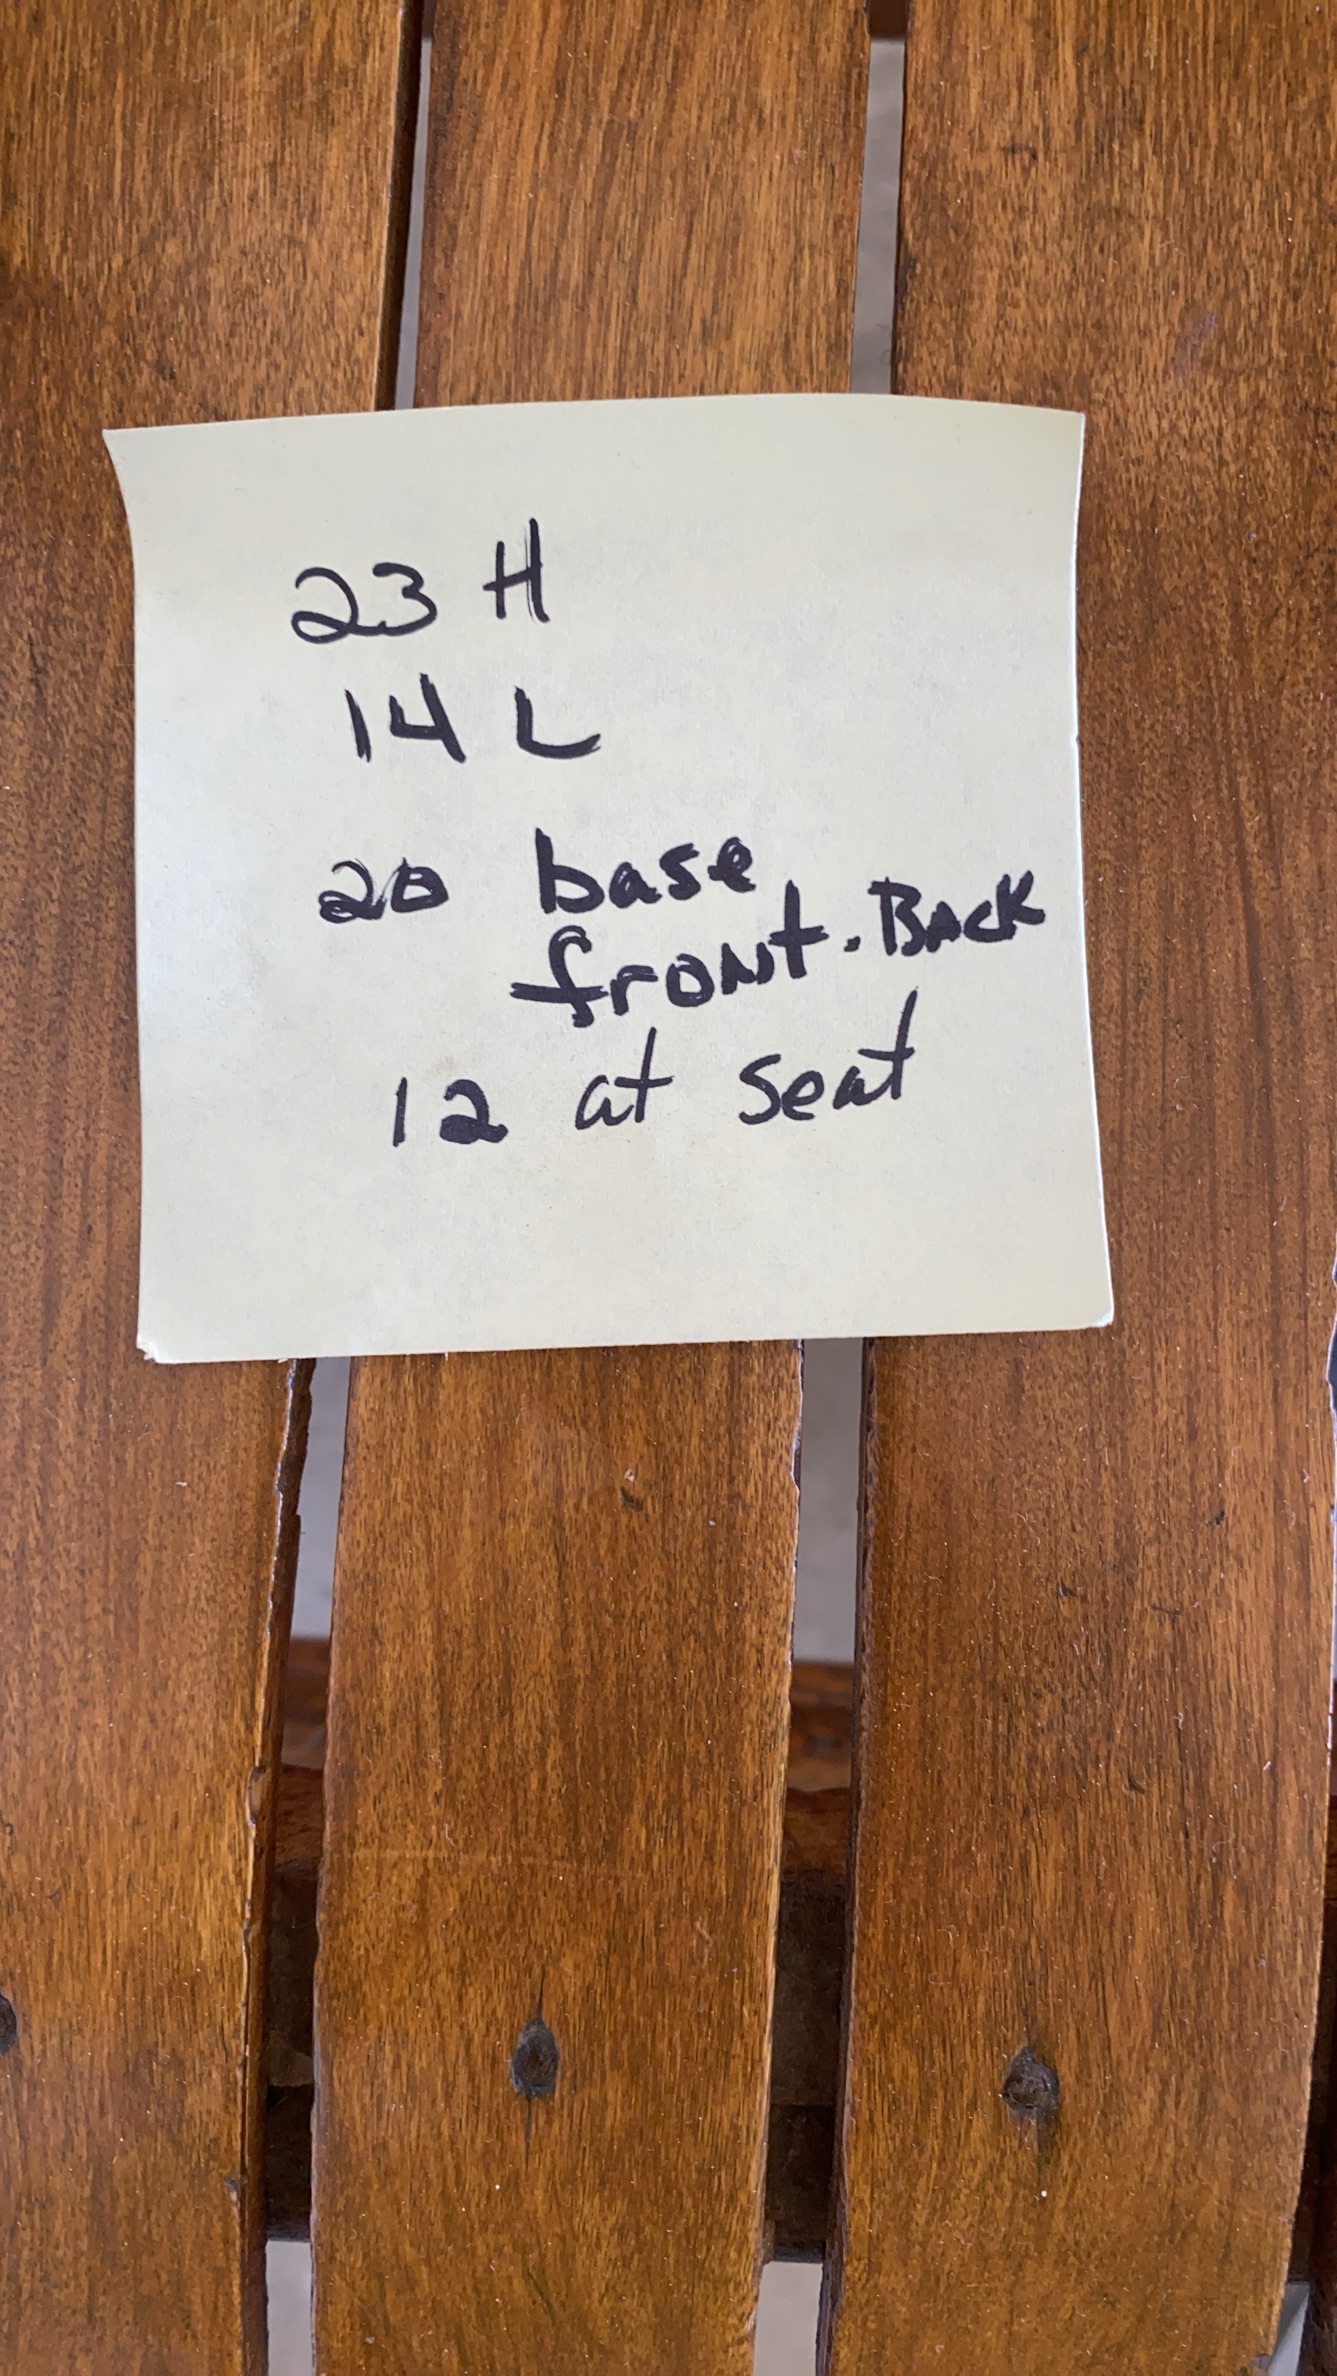 23 H
14 L
20 base
front. BACK
12 at seat